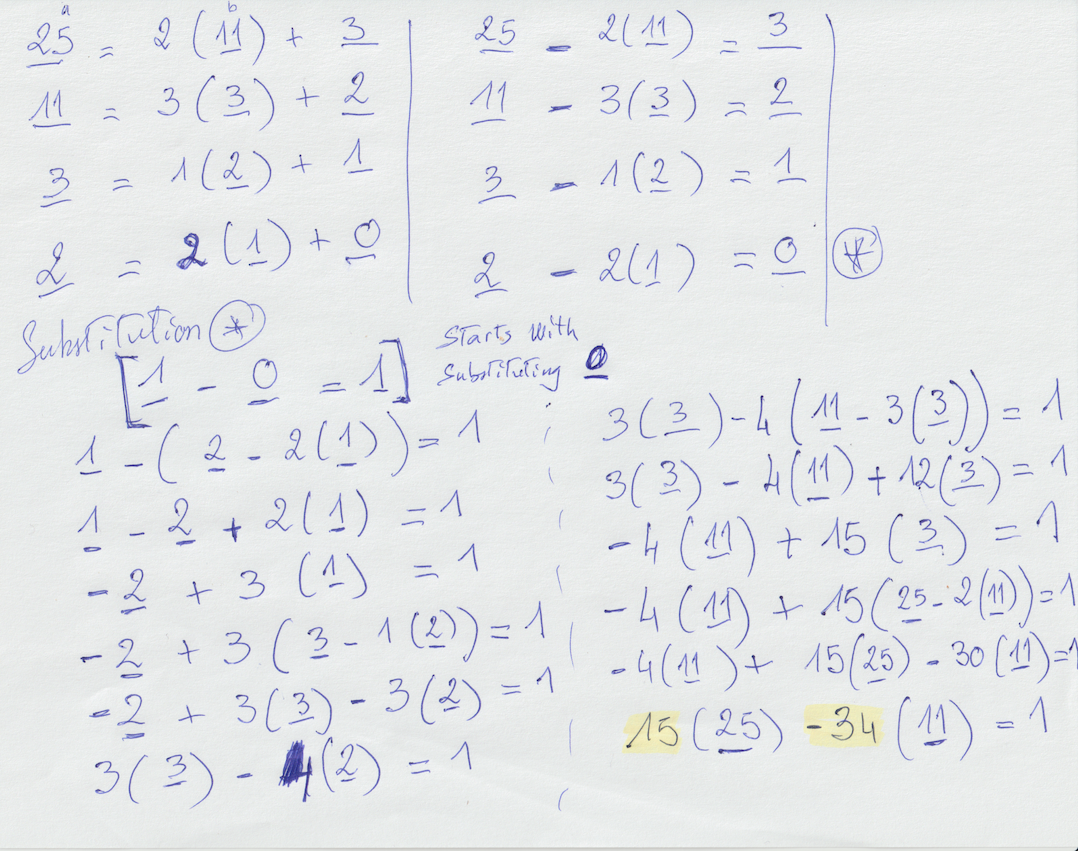 a b
25 = 2 (11) + 3
11 = 3 (3) + 2
3 = 1 (2) + 1
2 = 2 (1) + 0
25 - 2(11) = 3
11 - 3(3) = 2
3 - 1(2) = 1
2 - 2(1) = 0 (*)
Substitution (*)
[1 - 0 = 1]
Starts with
Substituting 0
1 - ( 2 - 2(1)) = 1
1 - 2 + 2(1) = 1
-2 + 3 (1) = 1
-2 + 3 (3 - 1(2)) = 1
-2 + 3(3) - 3(2) = 1
3(3) - 4(2) = 1
3(3) - 4(11 - 3(3)) = 1
3(3) - 4(11) + 12(3) = 1
-4 (11) + 15 (3) = 1
-4 (11) + 15(25 - 2(11)) = 1
-4(11) + 15(25) - 30(11) = 1
15 (25) -34 (11) = 1